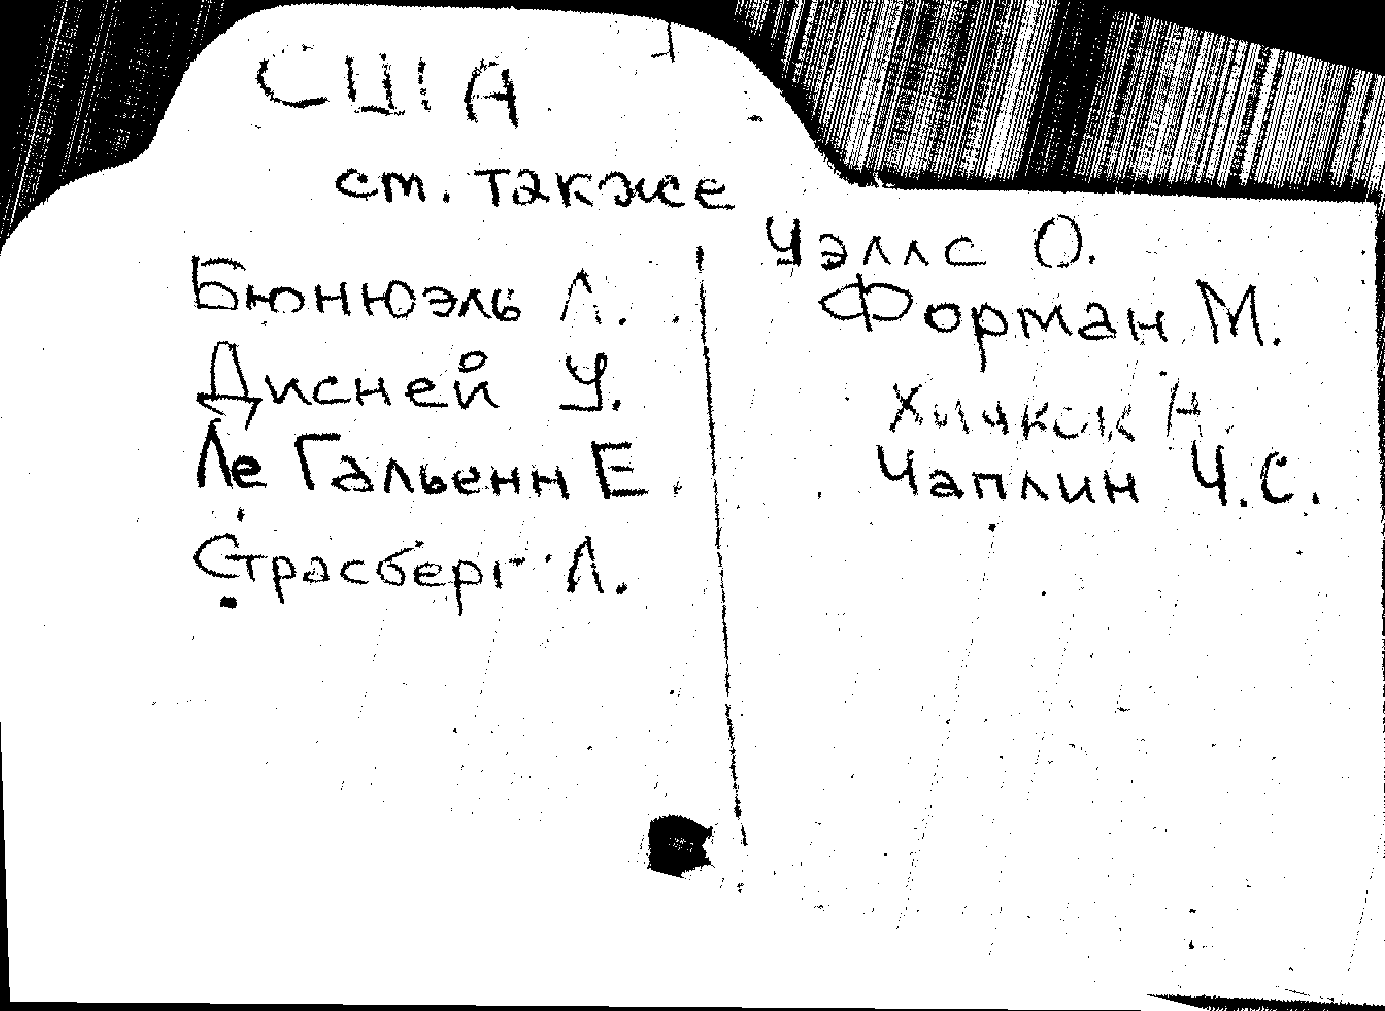 США
см. также
Бюнюэль Л.
Дисней У.
Ле Гальенн Е.
Страсберг Л.
Уэллс О.
Форман М.
Хичкок А.
Чаплин Ч.С.